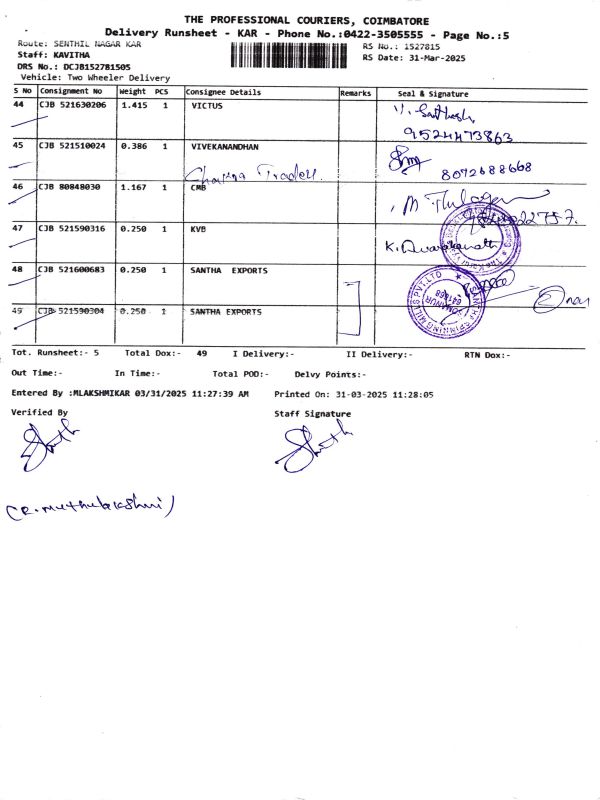 THE PROFESSIONAL COURIERS, COIMBATORE
Delivery Runsheet - KAR - Phone No.:0422-3505555 - Page No.:5
Route: SENTHIL NAGAR KAR
RS No.: 1527815
Staff: KAVITHA
RS Date: 31-Mar-2025
DRS No.: DCJB152781505
Vehicle: Two Wheeler Delivery
S No Consignment No Weight PCS Consignee Details Remarks Seal & Signature
44 CJB 521630206 1.415 1 VICTUS
9524473863
45 CJB 521510024 0.386 1 VIVEKANANDHAN
8072688668
46 CJB 80848030 1.167 1 CMB
47 CJB 521590316 0.250 1 KVB
48 CJB 521600683 0.250 1 SANTHA EXPORTS
49 CJB 521590304 0.250 1 SANTHA EXPORTS
Tot. Runsheet:- 5 Total Dox:- 49 I Delivery:- II Delivery:- RTN Dox:-
Out Time:- In Time:- Total POD:- Delvy Points:-
Entered By :MLAKSHMIKAR 03/31/2025 11:27:39 AM Printed On: 31-03-2025 11:28:05
Verified By Staff Signature
(R. Muthulakshmi)